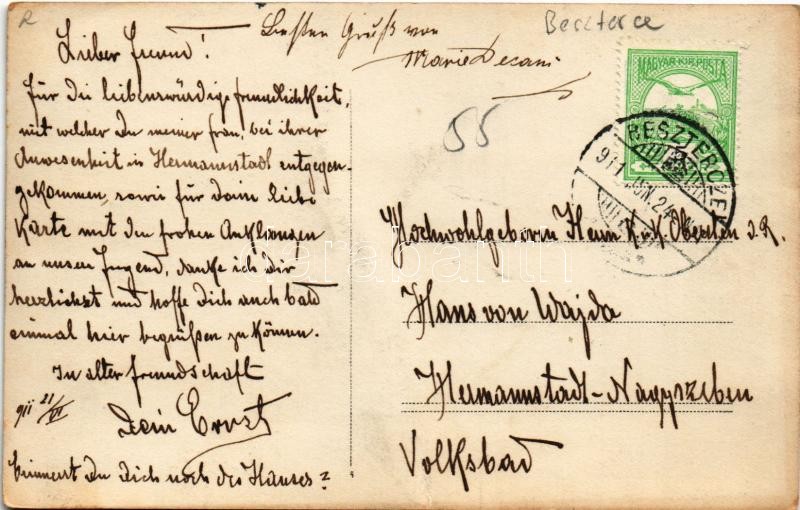 R
Besten Gruß von
Marie Decani
Beszterce
Lieber Freund!
Für die liebenswürdige Freundlichkeit,
mit welcher Du meiner Frau, bei ihrer
Anwesenheit in Hermannstadt entgegen-
gekommen, sowie für Deine liebe
Karte mit den frohen Anklängen
an unsere Jugend, danke ich Dir
herzlichst und hoffe Dich auch bald
einmal hier begrüßen zu können.
In alter Freundschaft
911 21/VI Dein Ernst
Erinnerst Du Dich noch des Hauses?
55
MAGYAR KIR. POSTA
BESZTERCZE
911 JUN. 24
Hochwohlgeboren Herrn K.u.K. Obersten d. R.
Hans von Wajda
Hermannstadt-Nagyszeben
Volksbad
darabanth